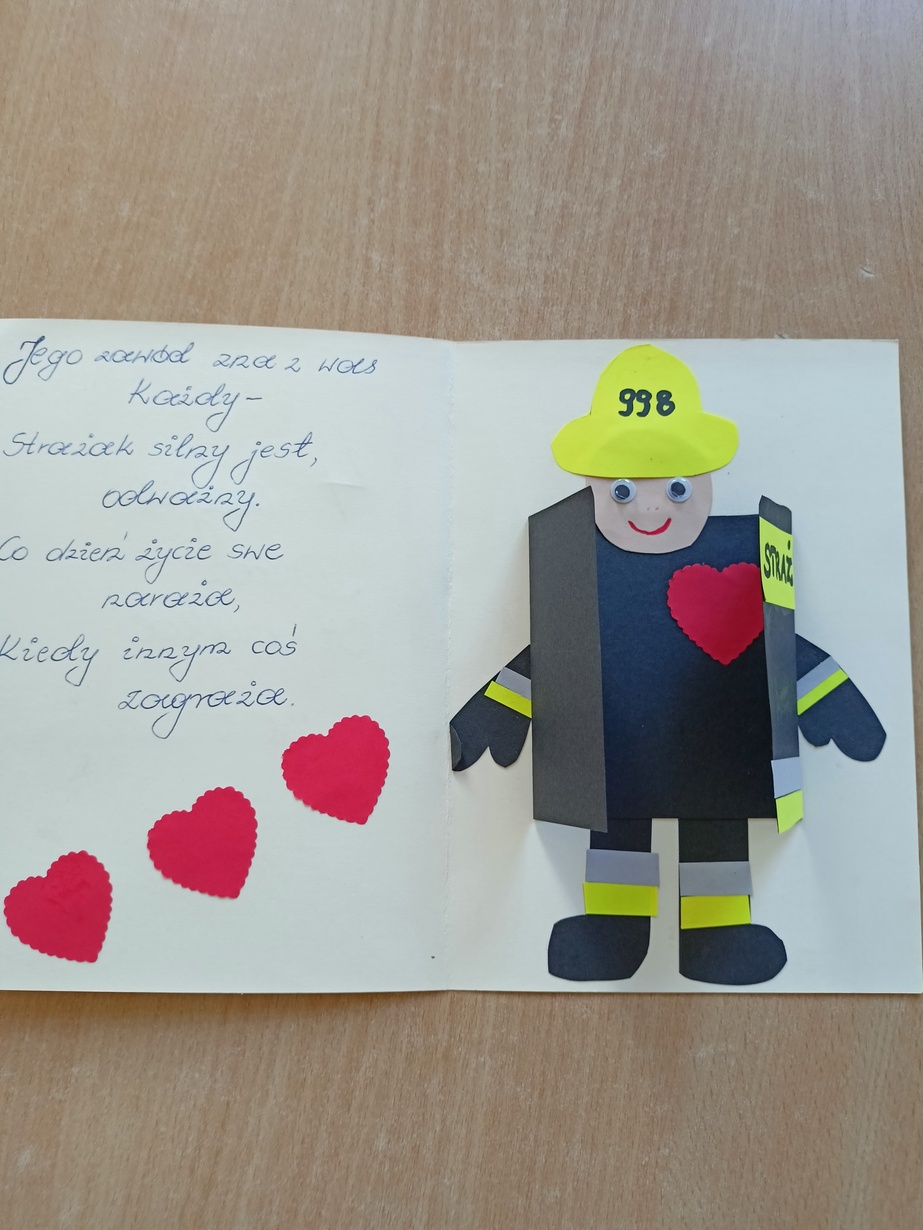 Jego zawód zna z was
Każdy-
Strażak silny jest,
odważny.
Co dzień życie swe
naraża,
Kiedy innym coś
zagraża.
998
STRAŻ